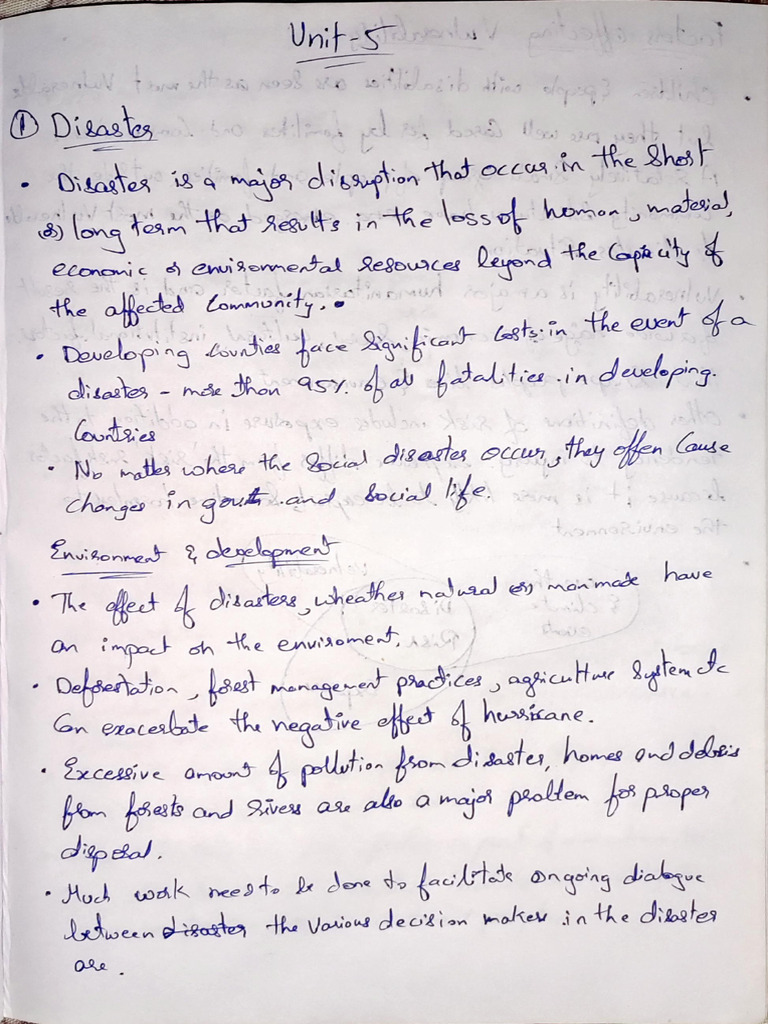 Unit-5
① Disaster
• Disaster is a major disruption that occur in the short
(or) long term that results in the loss of human, material,
economic or environmental resources beyond the Capacity of
the affected Community.
• Developing Counties face Significant Costs in the event of a
disaster - more than 95% of all fatalities in developing
Countries
• No matter where the Social disaster occur, they often Cause
changes in govt. and Social life.
Environment & development
• The effect of disasters, wheather natural (or) manmade have
an impact on the enviroment.
• Deforestation, forest management practices, agriculture System etc
Can exacerbate the negative effect of hurricane.
• Excessive amount of pollution from disaster, homes and debris
from forests and rivers are also a major problem for proper
disposal.
• Much work need to be done to facilitate ongoing dialogue
between disaster the various decision makers in the disaster
are.